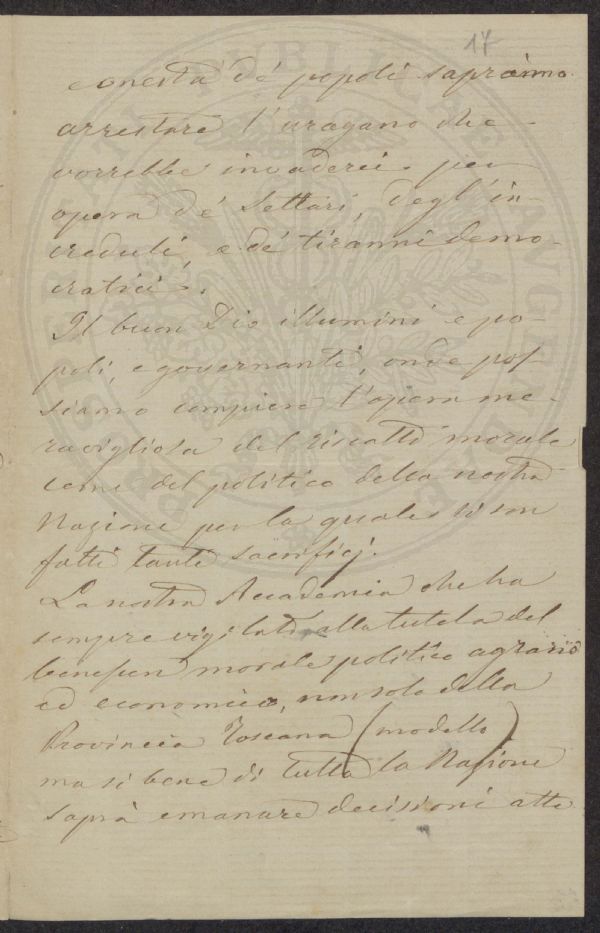 17
e onestà de' popoli sapranno
arrestare l'uragano che
vorrebbe invaderci per
opera de' Settari, degl'in-
creduli, e de' tiranni demo-
cratici.
Il buon Dio illumini e po-
poli, e governanti, onde pos-
siamo compiere l'opera me-
ravigliosa del riscatto morale
come del politico della nostra
Nazione per la quale si son
fatti tanti sacrifici.
La nostra Accademia che ha
sempre vigilato alla tutela del
benessere morale politico agrario
ed economico, non solo della
Provincia Toscana (modello)
ma si bene di tutta la Nazione
saprà emanare decisioni atte